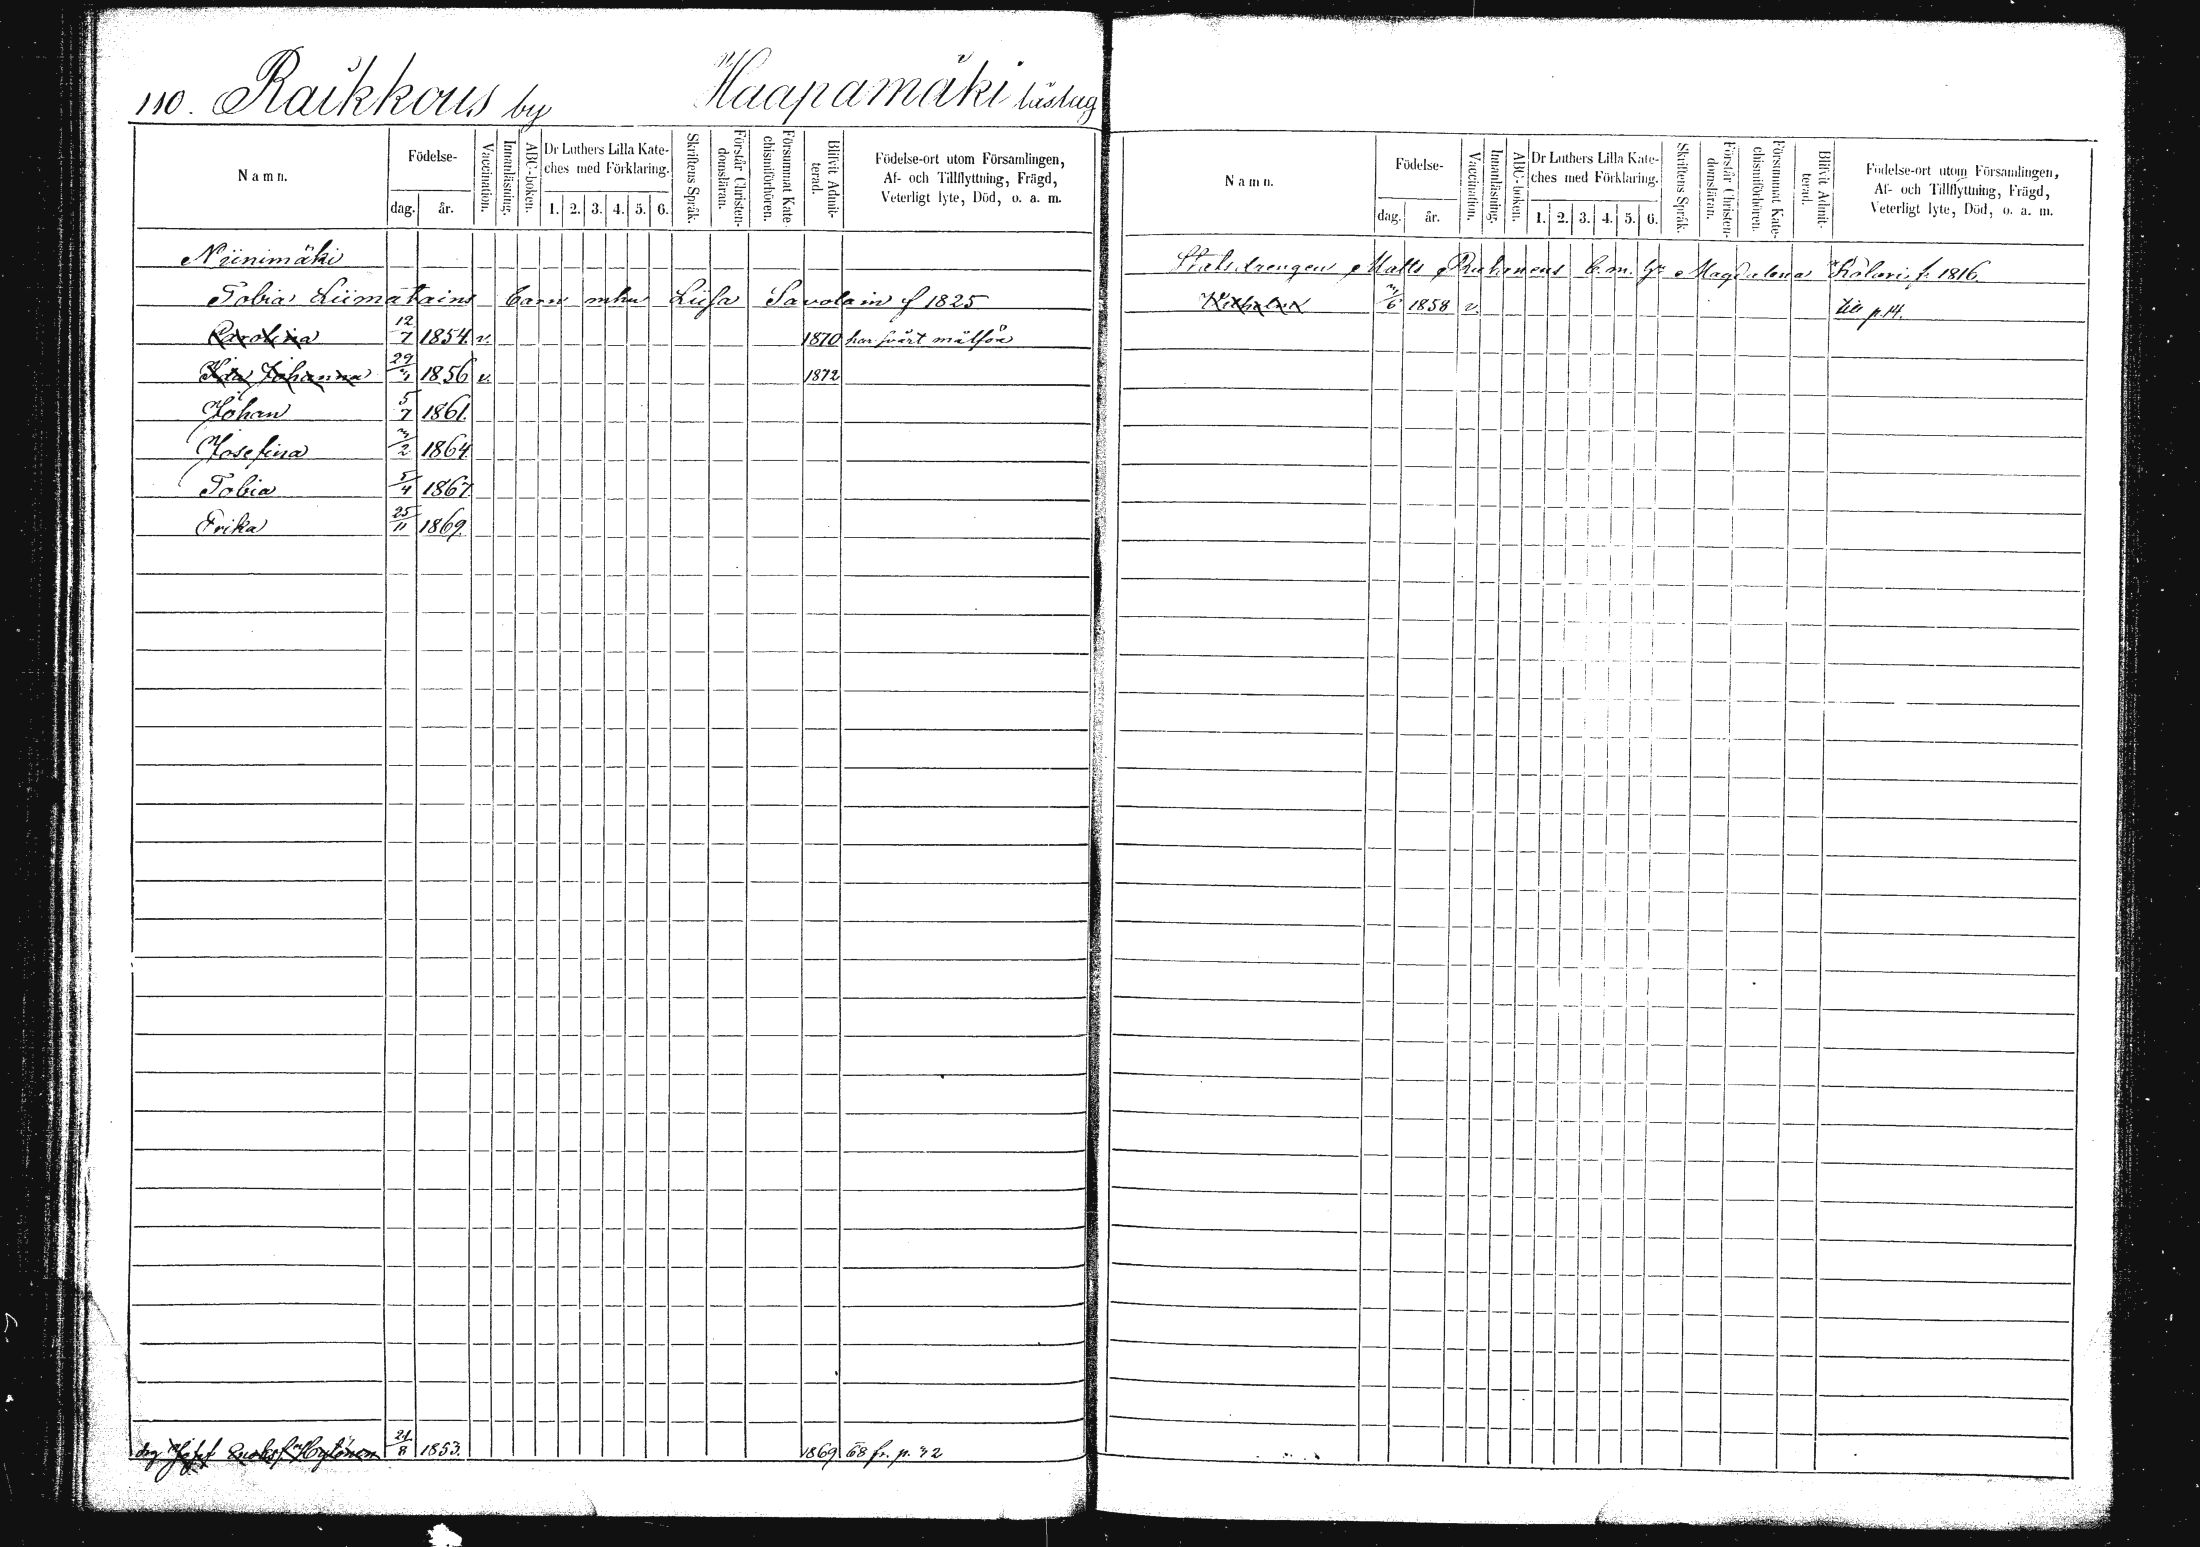 110. Raikkous by Haapamäki läslag
Namn. Födelse- dag. år. Vaccination. Innanläsning. ABC-boken. Dr Luthers Lilla Kateches med Förklaring. 1. 2. 3. 4. 5. 6. Skriftens Språk. Förstår Christendomsläran. Försummat Katechismiförhören. Blifvit Admitterad. Födelse-ort utom Församlingen, Af- och Tillflyttning, Frägd, Veterligt lyte, Död, o. a. m.
Niinimäki
Tobia Liimatains barn mhu Liisa Savolain f 1825
Carolina 12/7 1854. v. 1870 har svårt målföre
Ida Johanna 29/ 1856 v. 1872
Johan 5/7 1861.
Josefina /2 1864.
Tobia 5/4 1867
Erika 25/11 1869.
drg Enoksf. Hytönen 21/8 1853. 1869. 68 fr. p.
Namn. Födelse- dag. år. Vaccination. Innanläsning. ABC-boken. Dr Luthers Lilla Kateches med Förklaring. 1. 2. 3. 4. 5. 6. Skriftens Språk. Förstår Christendomsläran. Försummat Katechismiförhören. Blifvit Admitterad. Födelse-ort utom Församlingen, Af- och Tillflyttning, Frägd, Veterligt lyte, Död, o. a. m.
Matts b. m. Magdalena f. 1816.
/6 1858 v. till p. 14.